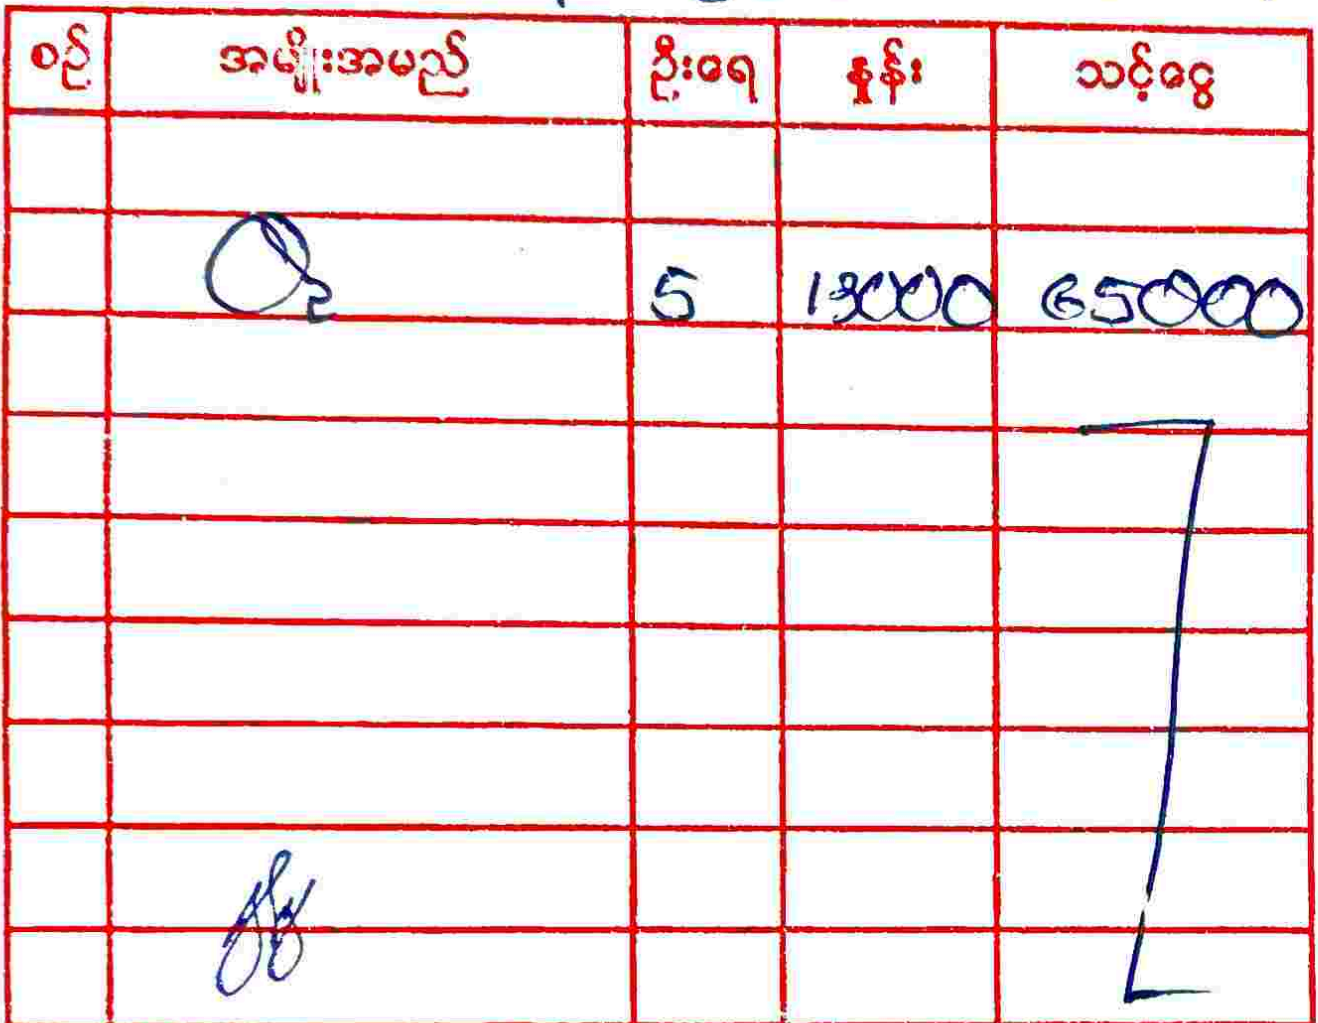 စဉ် အမျိုးအမည် ဦးရေ နှုန်း သင့်ငွေ
5 13000 65000